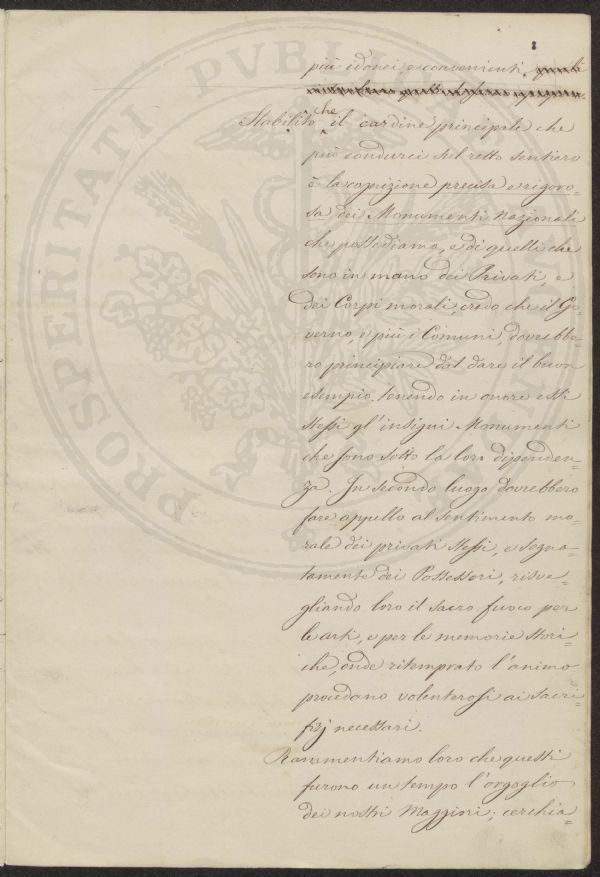 più idonei, e convenienti,
Stabilito che il cardine principale che
può condurci sul retto sentiero
è la cognizione precisa e rigoro=
sa dei Monumenti Nazionali
che possediamo, e di quelli che
sono in mano dei Privati, e
dei Corpi morali, credo che il Go=
verno, e più i Comuni, dovrebbe=
ro principiare dal dare il buon
esempio tenendo in onore essi
stessi gl'insigni Monumenti
che sono sotto la loro dipenden=
za. In secondo luogo dovrebbero
fare appello al sentimento mo=
rale dei privati stessi, e segna=
tamente dei Possessori, risve=
gliando loro il sacro fuoco per
le arti, e per le memorie stori=
che, onde ritemprato l'animo
procedano volenterosi ai sacri=
fizj necessari.
Rammentiamo loro che questi
furono un tempo l'orgoglio
dei nostri Maggiori; cerchia=
PROSPERITATI PUBLI